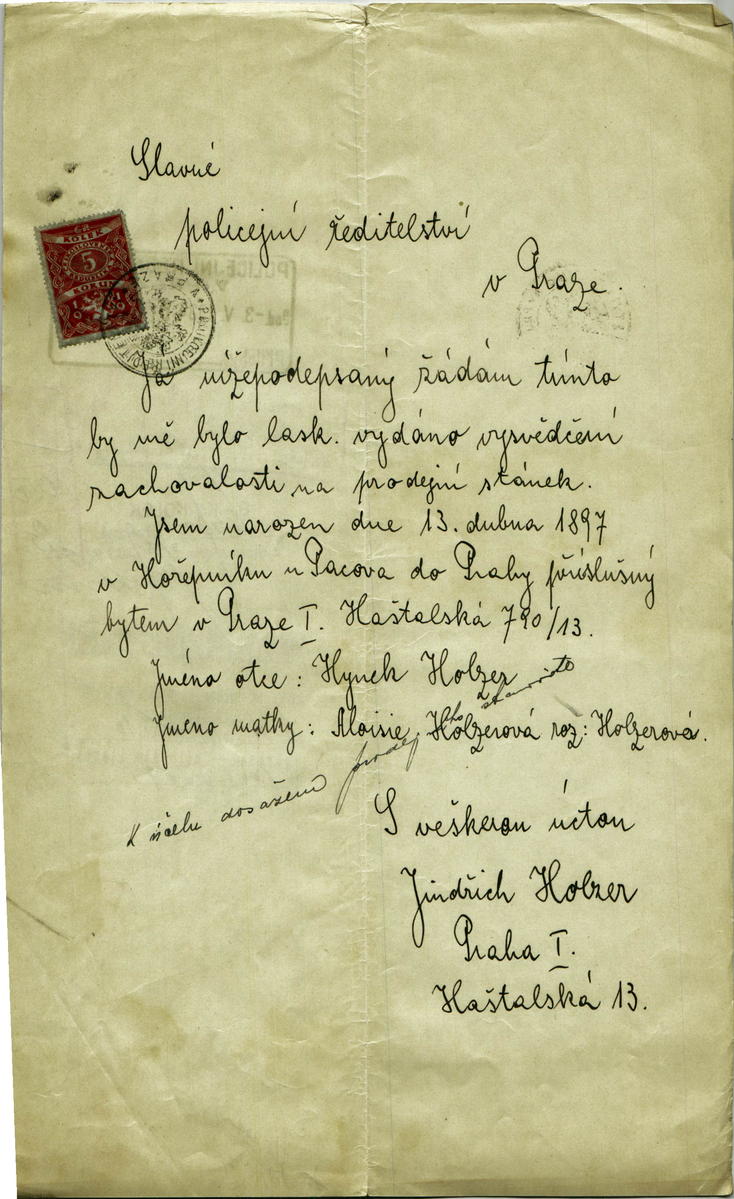 Slavné
policejní ředitelství
v Praze.
KOLEK
5
POLICEJNÍ
Já nížepodepsaný žádám tímto
by mě bylo lask. vydáno vysvědčení
zachovalosti na prodejní stánek.
Jsem narozen dne 13. dubna 1897
v Hořepníku u Pacova do Prahy příslušný
bytem v Praze I. Haštalská 790/13.
Jméno otce: Hynek Holzer
Jmeno matky: Aloisie Holzerová roz: Holzerová.
K účelu dosažení prodejního
S veškerou úctou
Jindřich Holzer
Praha I.
Haštalská 13.